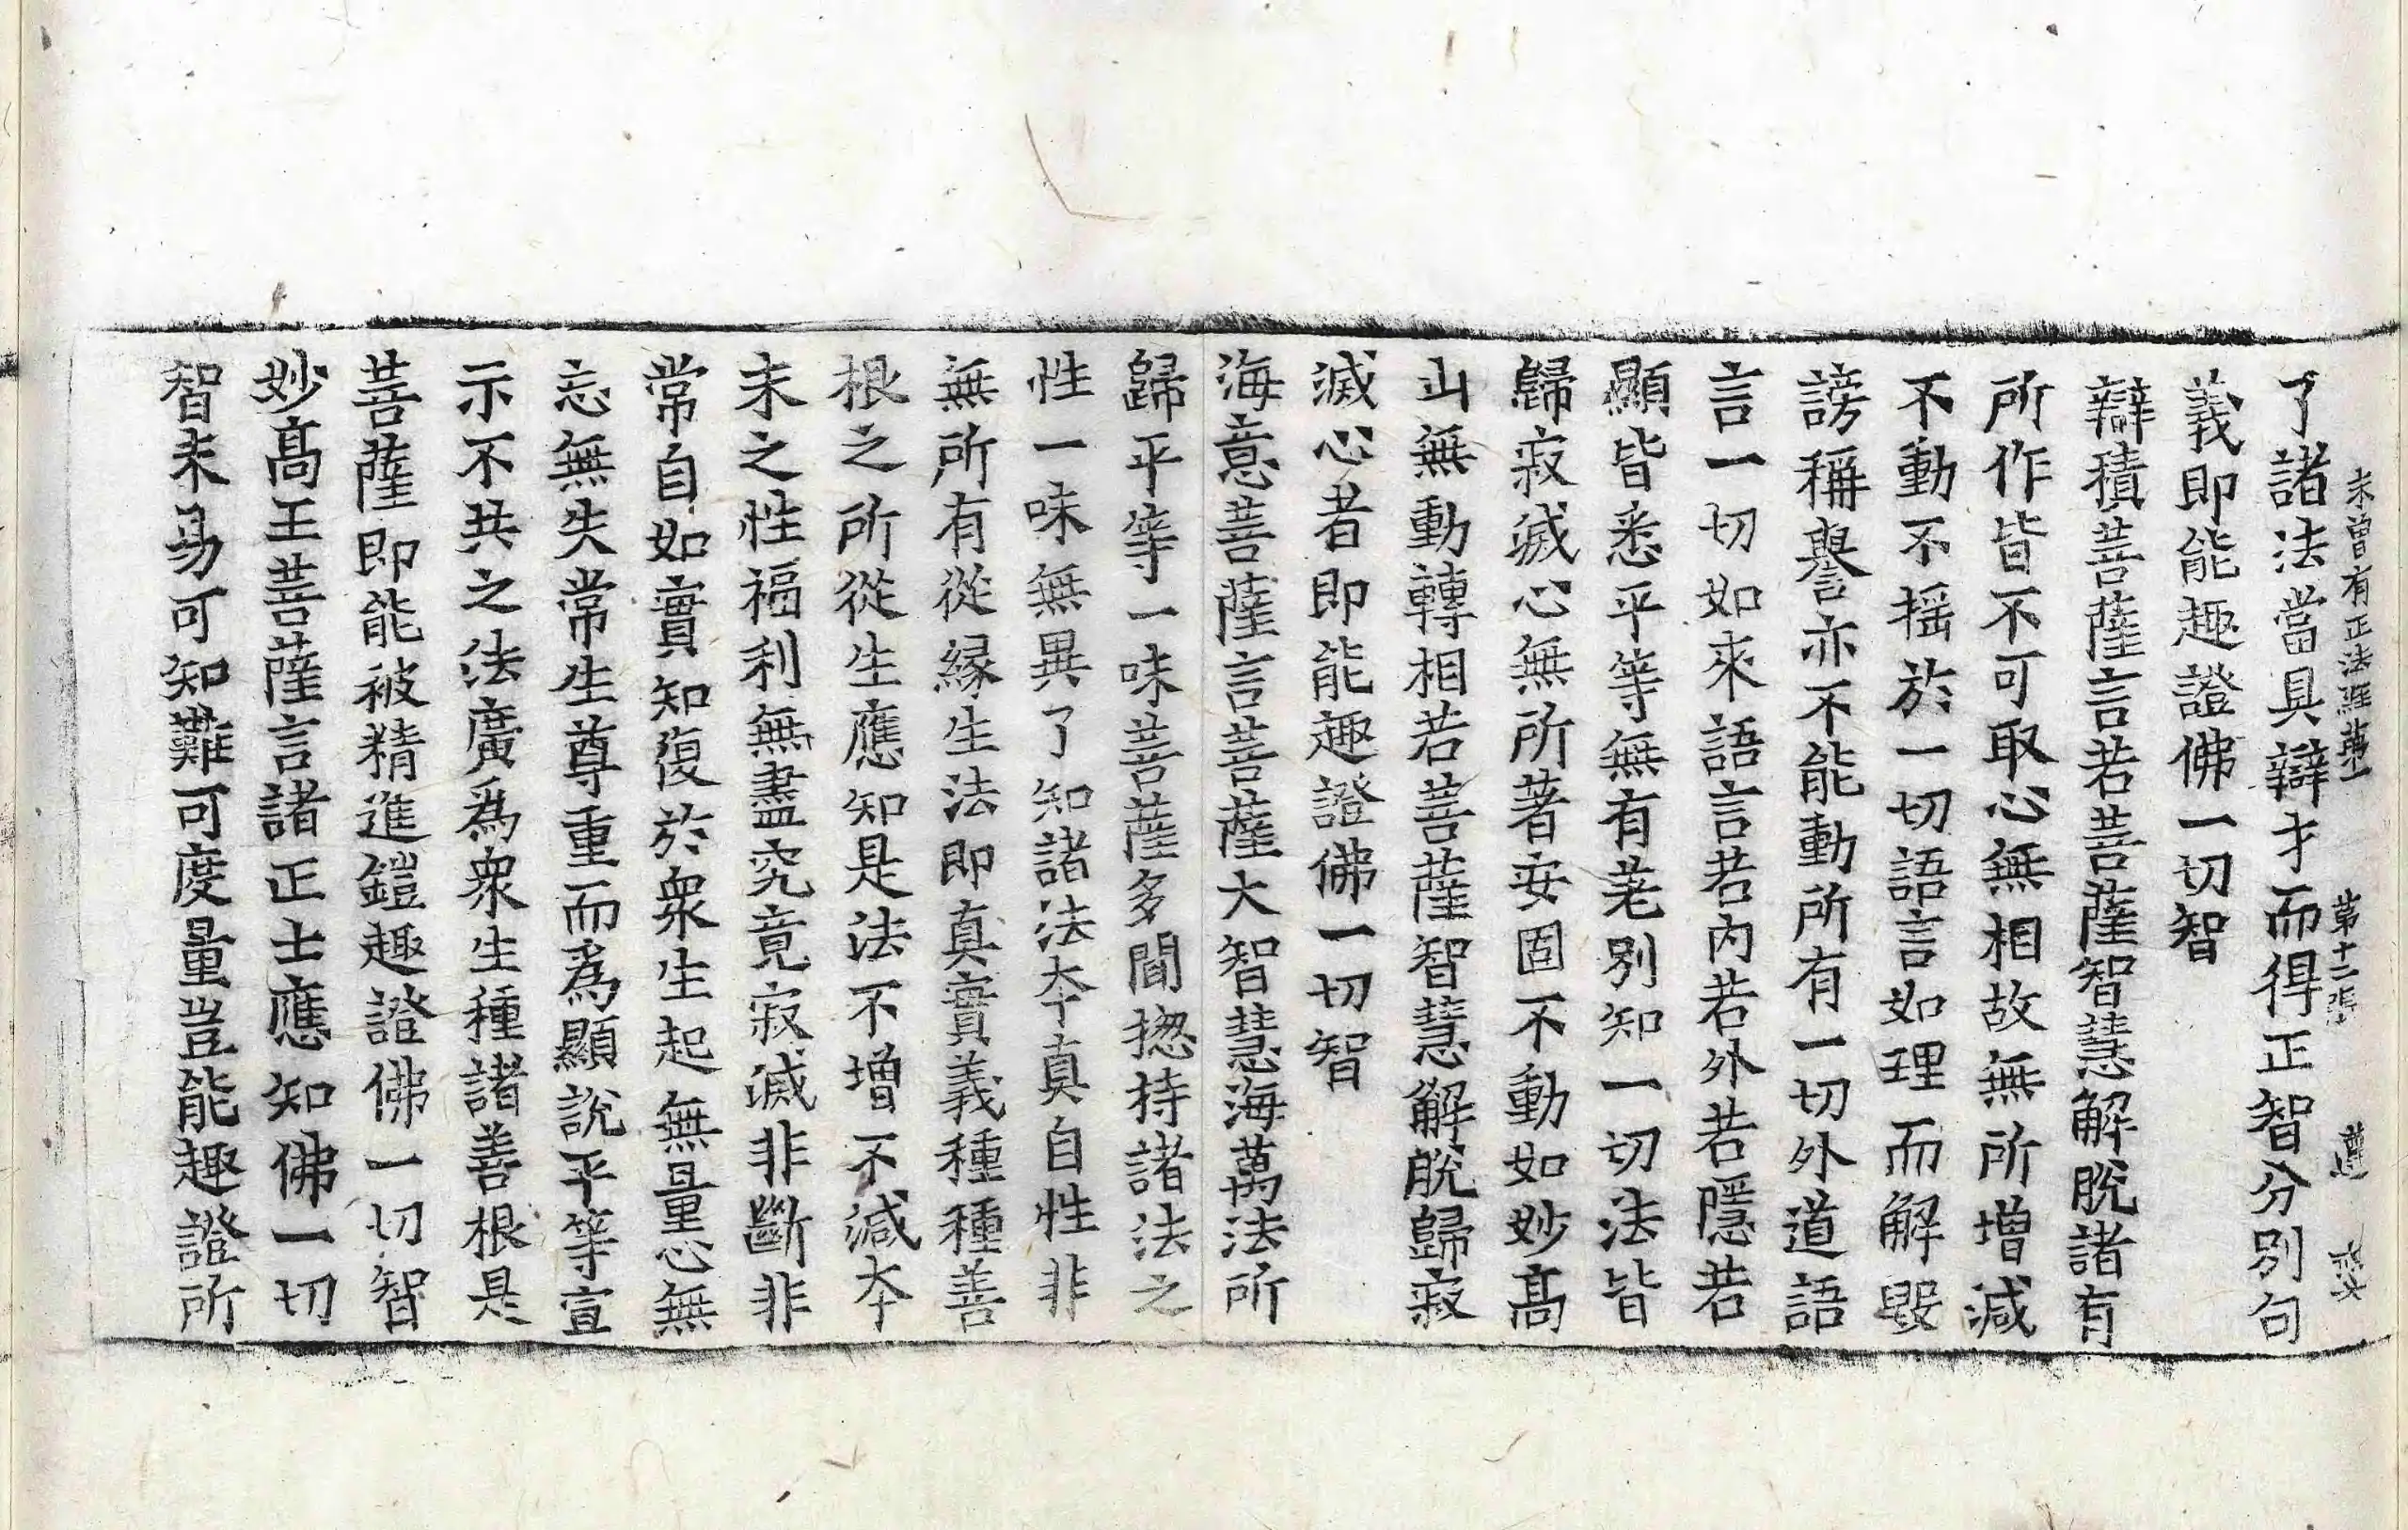 未曾有正法經第一 第十二張 
了諸法當具辯才而得正智分別句
義即能趣證佛一切智
辯積菩薩言若菩薩智慧解脫諸有
所作皆不可取心無相故無所增減
不動不搖於一切語言如理而解毀
謗稱譽亦不能動所有一切外道語
言一切如來語言若內若外若隱若
顯皆悉平等無有差別知一切法皆
歸寂滅心無所著安固不動如妙高
山無動轉相若菩薩智慧解脫歸寂
滅心者即能趣證佛一切智
海意菩薩言菩薩大智慧海萬法所
歸平等一味菩薩多聞揔持諸法之
性一味無異了知諸法夲真自性非
無所有從緣生法即真實義種種善
根之所從生應知是法不增不減夲
末之性福利無盡究竟寂滅非斷非
常自如實知復於衆生起無量心無
忘無失常生尊重而為顯說平等宣
示不共之法廣為衆生種諸善根是
菩薩即能被精進鎧趣證佛一切智
妙髙王菩薩言諸正士應知佛一切
智未易可知難可度量豈能趣證所